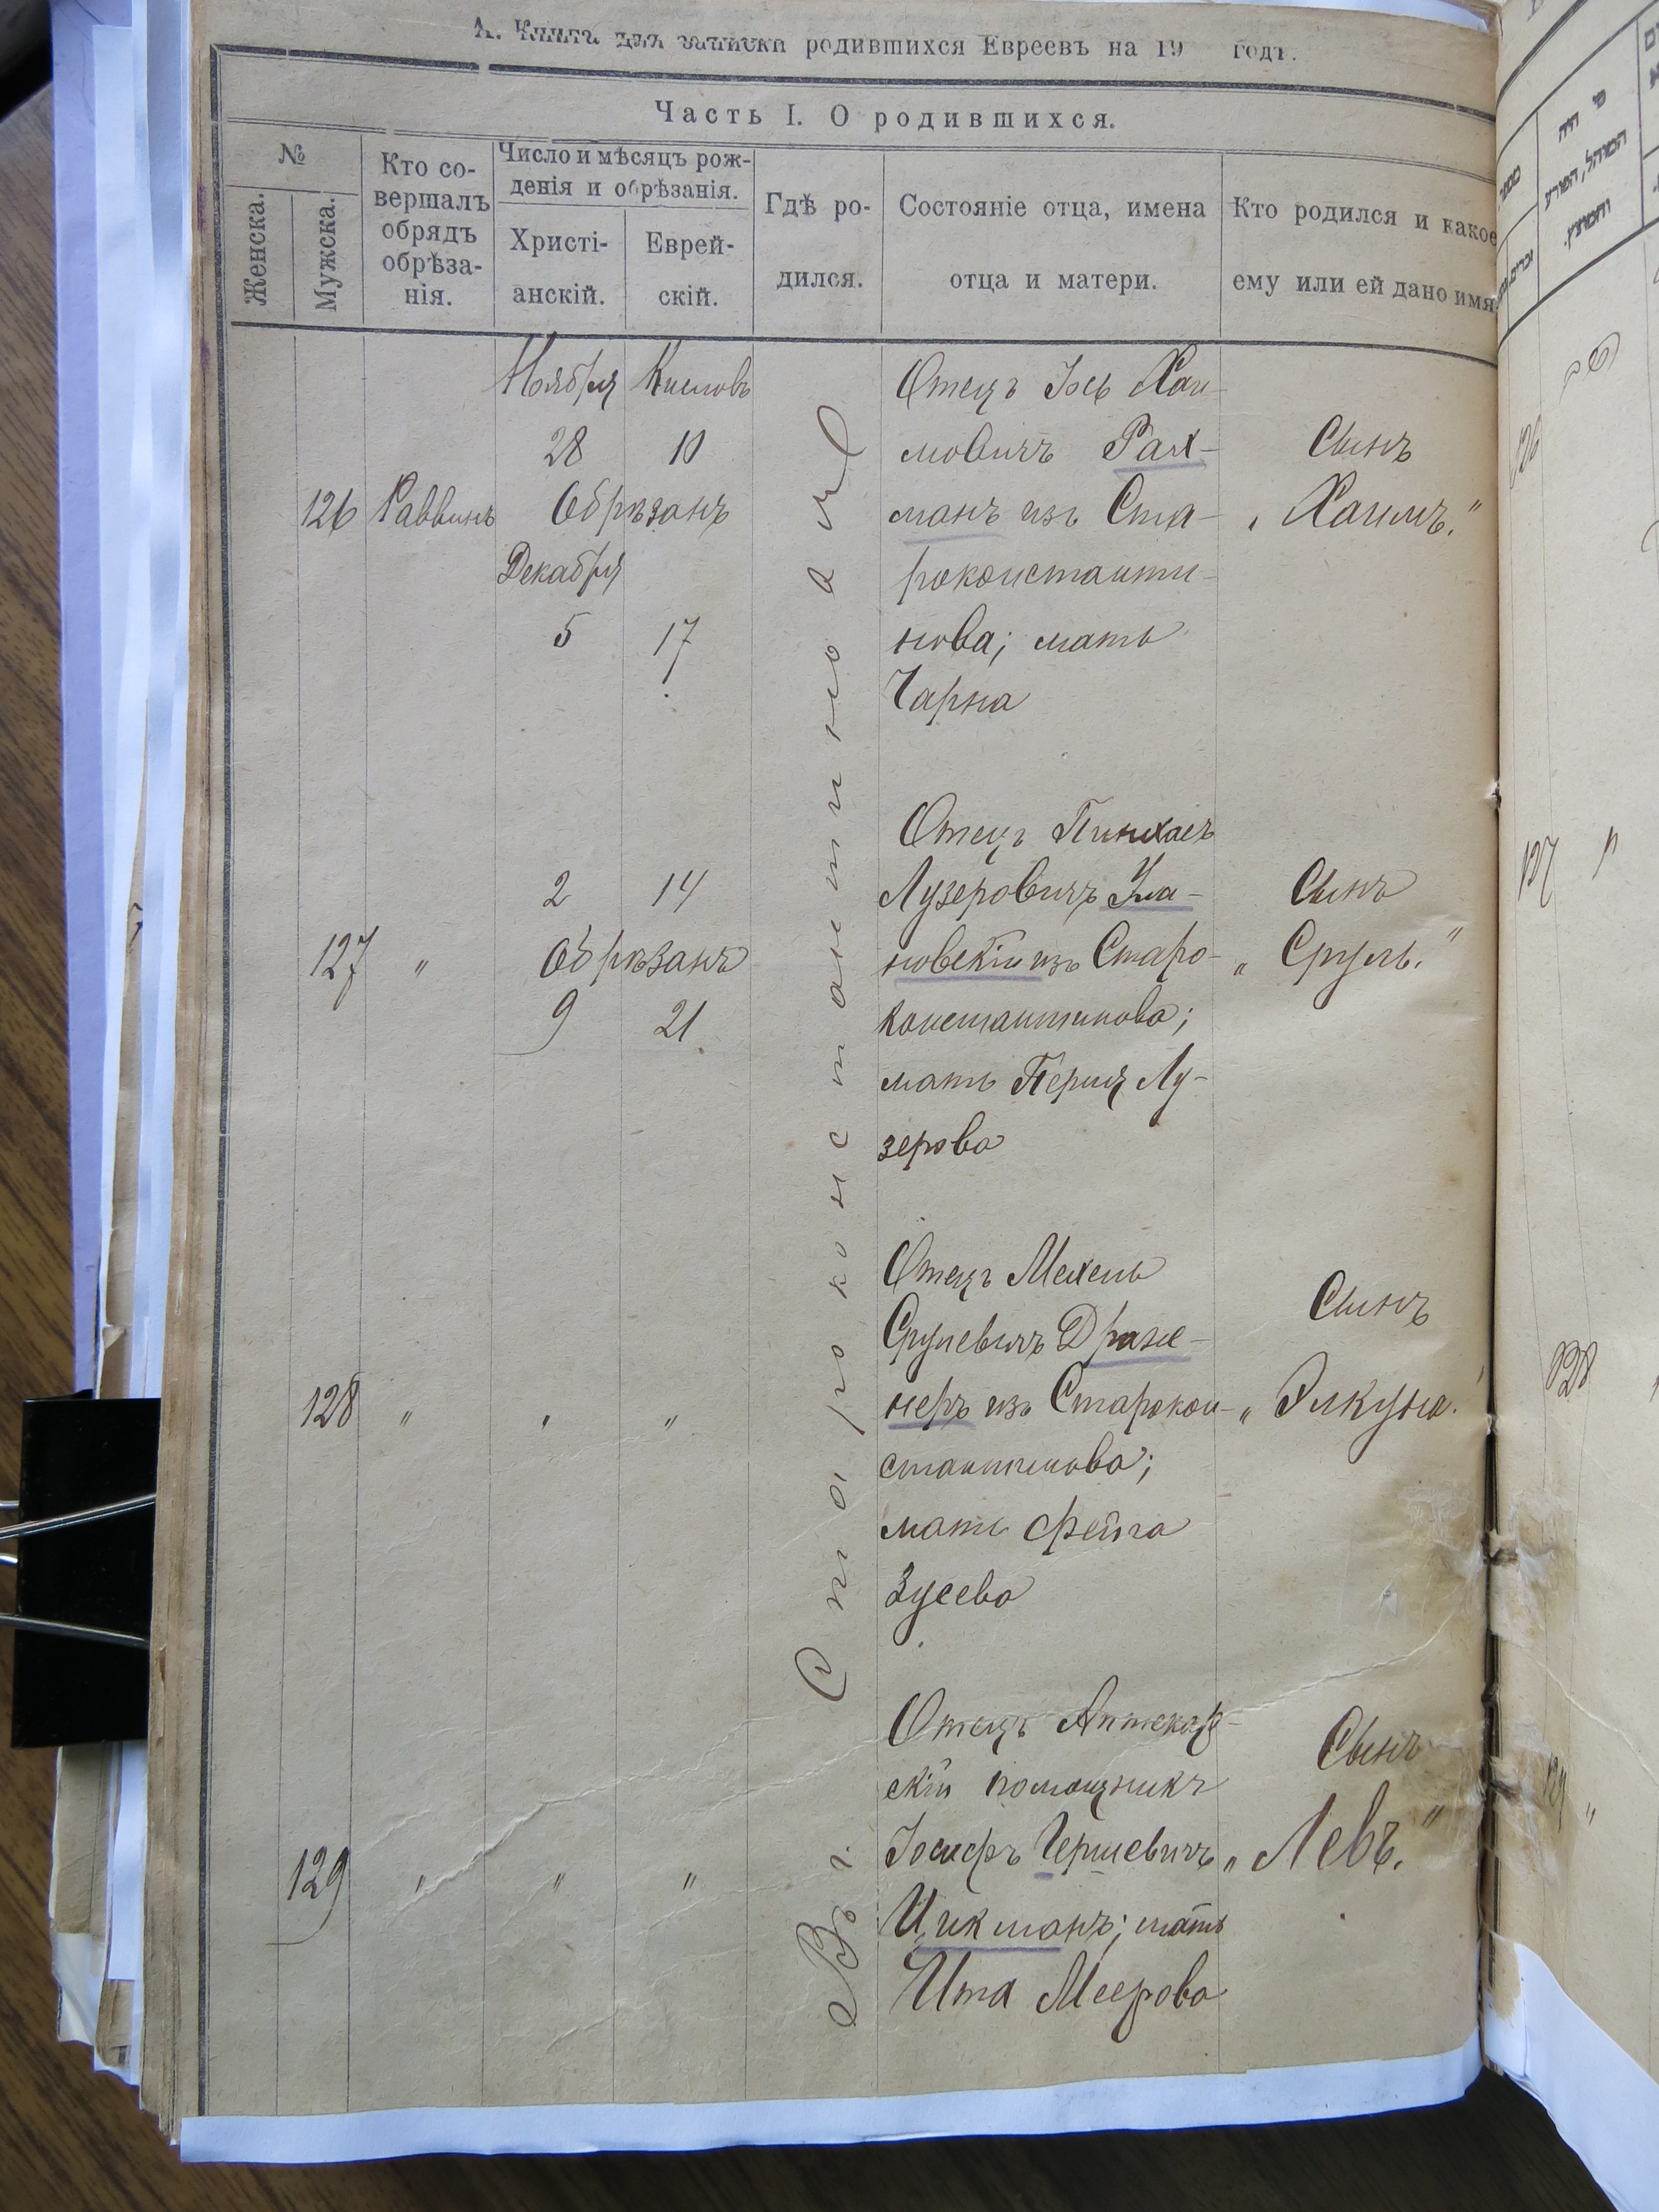 А. Книга для записки родившихся Евреевъ на 19 годъ.
Часть I. О родившихся.
№
Женска.
Мужска.
Кто со-
вершалъ
обрядъ
обрѣза-
нія.
Число и мѣсяцъ рож-
денія и обрѣзанія.
Христі-
анскій.
Еврей-
скій.
Гдѣ ро-
дился.
Состояніе отца, имена
отца и матери.
Кто родился и какое
ему или ей дано имя
Въ г. Староконстантиновѣ
Ноября Кислевъ
28 10
126 Раввинъ Обрѣзанъ
Декабря
5 17
Отецъ Іось Хаи-
мовичъ Рах-
манъ изъ Ста-
роконстанти-
нова; мать
Чарна
Сынъ
„Хаимъ."
2 14
127 " Обрѣзанъ
9 21
Отецъ Пинхасъ
Лузеровичъ Ула-
новскій изъ Старо-
константинова;
мать Перля Лу-
зерова
Сынъ
„Сруль."
128 " " "
Отецъ Мехель
Срулевичъ Драж-
неръ изъ Старокон-
стантинова;
мать Фейга
Зусева
Сынъ
„Элкуна."
129 " " "
Отецъ Аптекар-
скій помощникъ
Іосифъ Гершевичъ
Цикманъ; мать
Ита Меерова
Сынъ
„Левъ."
מי היה
המוהל, הפורע
והמוצץ.
126
127
128
129